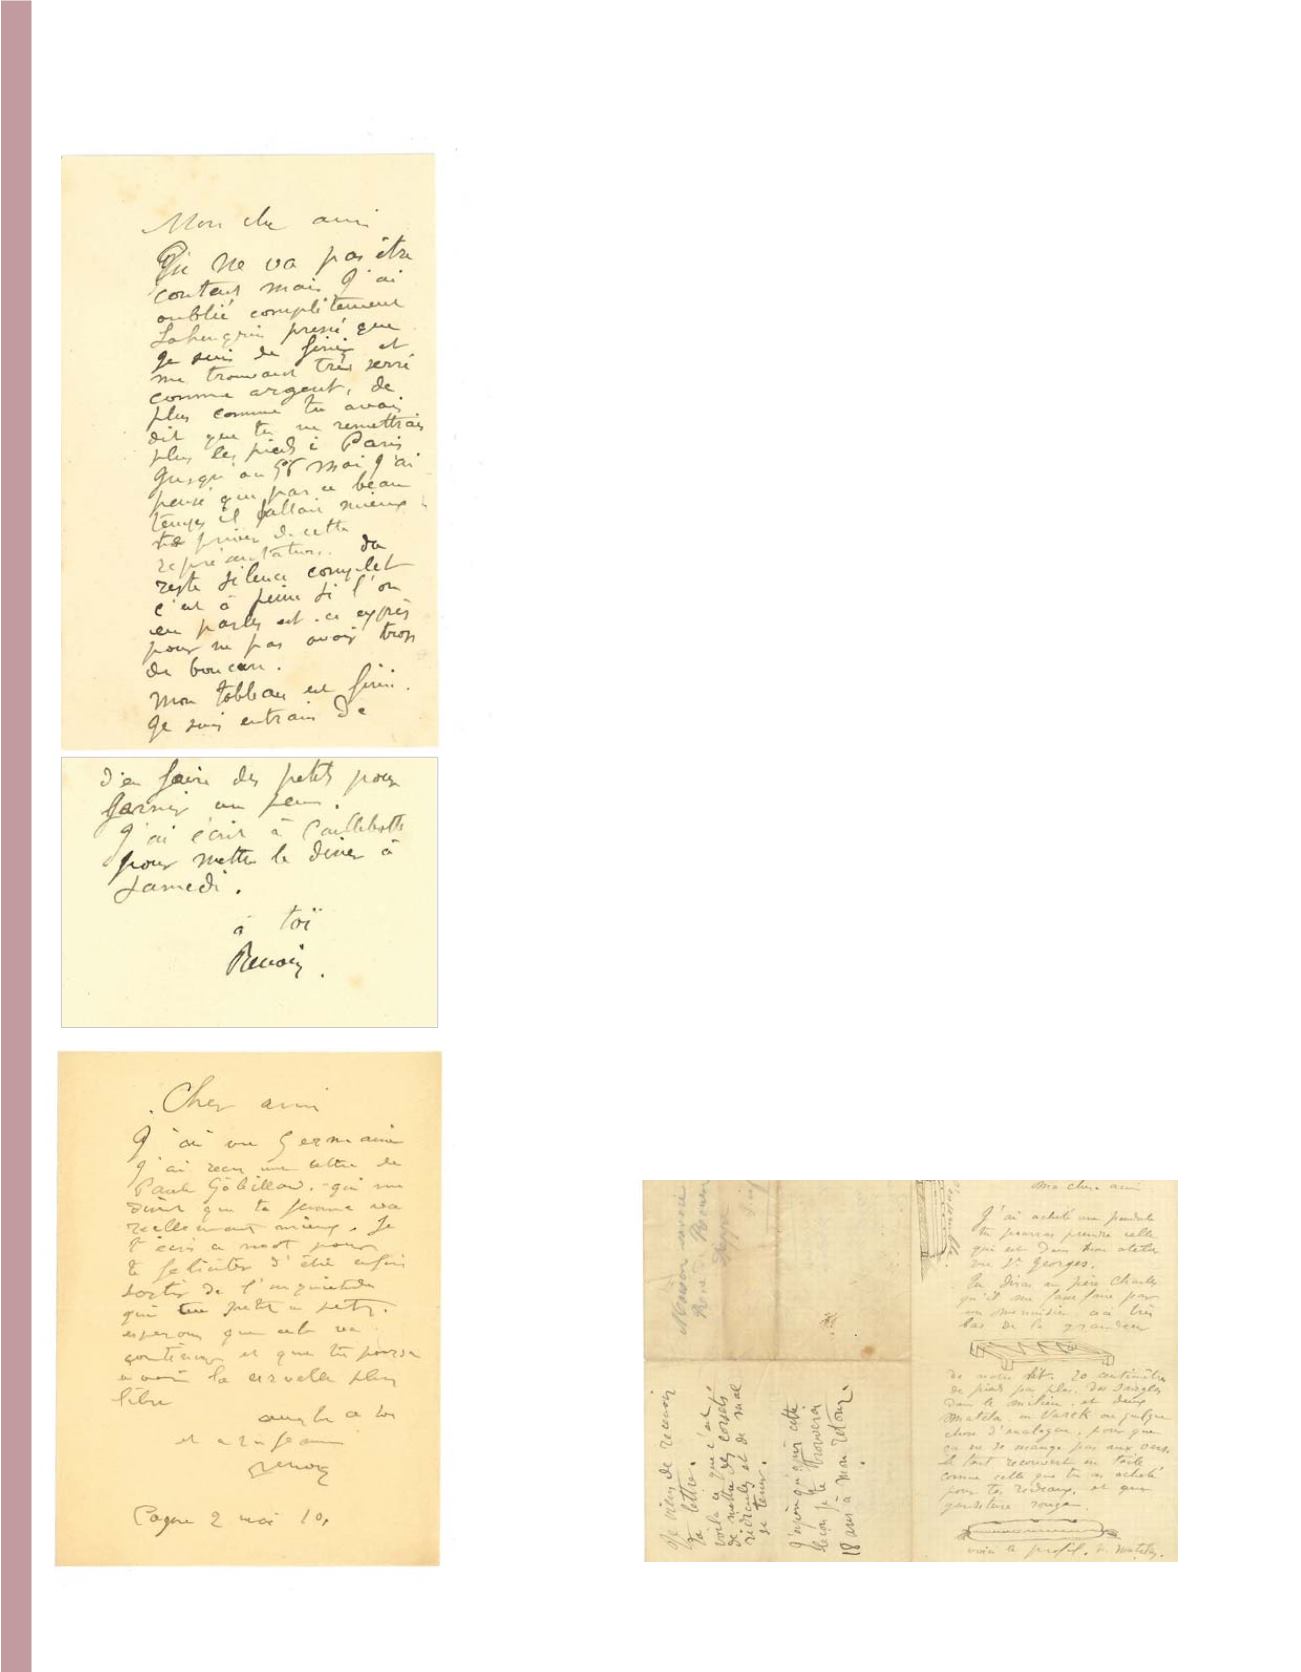 Mon che ami
Qui ne va pas être
content mais j'ai
oublié complètement
Lohengrin pressé que
je suis de finir et
me trouvant très serré
comme argent, de
plus comme tu avais
dit que tu ne remettrais
plus les pieds à Paris
jusqu'au mai j'ai
pensé que par ce beau
temps il fallait mieux
te priver de cette
représentation. du
reste silence complet
c'est à peine si l'on
en parle est-ce exprès
pour ne pas avoir trop
de boucan.
Mon tableau est fini.
Je suis entrain de
d'en faire des petits pour
garnir un peu.
J'ai écrit à Caillebotte
pour mettre le diner à
Samedi.
à toi
Renoir.
Cher ami
J'ai vu Germaine
J'ai reçu une lettre de
Paule Gobillard. qui me
disent que ta femme va
reellement mieux. Je
t'écris ce mot pour
te feliciter d'être enfin
sortir de l'inquiétude
qui petit a petit.
esperons que cela va
continuer et que tu pourra
avoir la cervelle plus
libre
et a ta femme
renoir
Cagne 2 mai 10.
Maison
Rue de
Dieppe
Je viens de recevoir
ta lettre.
voila ce que c'est
de mettre des corsets
ridicules et de mal
se tenir.
J'espère qu'après cette
leçon je te trouverai
18 ans à mon retour.
Mon cher ami
J'ai acheté une pendule
tu pourras prendre celle
qui est dans mon atelier
rue St Georges.
Tu diras au père Charles
qu'il me fasse faire par
un menuisier très
bas de la grandeur
de notre lit. 20 centimètres
de pieds pas plus. des sangles
dans le milieu. et deux
matelas en Varek ou quelque
chose d'analogue, pour que
ça ne se mange pas aux vers.
le tout recouvert en toile
comme celle que tu as acheté
pour tes rideaux, et une
rouge.
voici le profil. matelas.